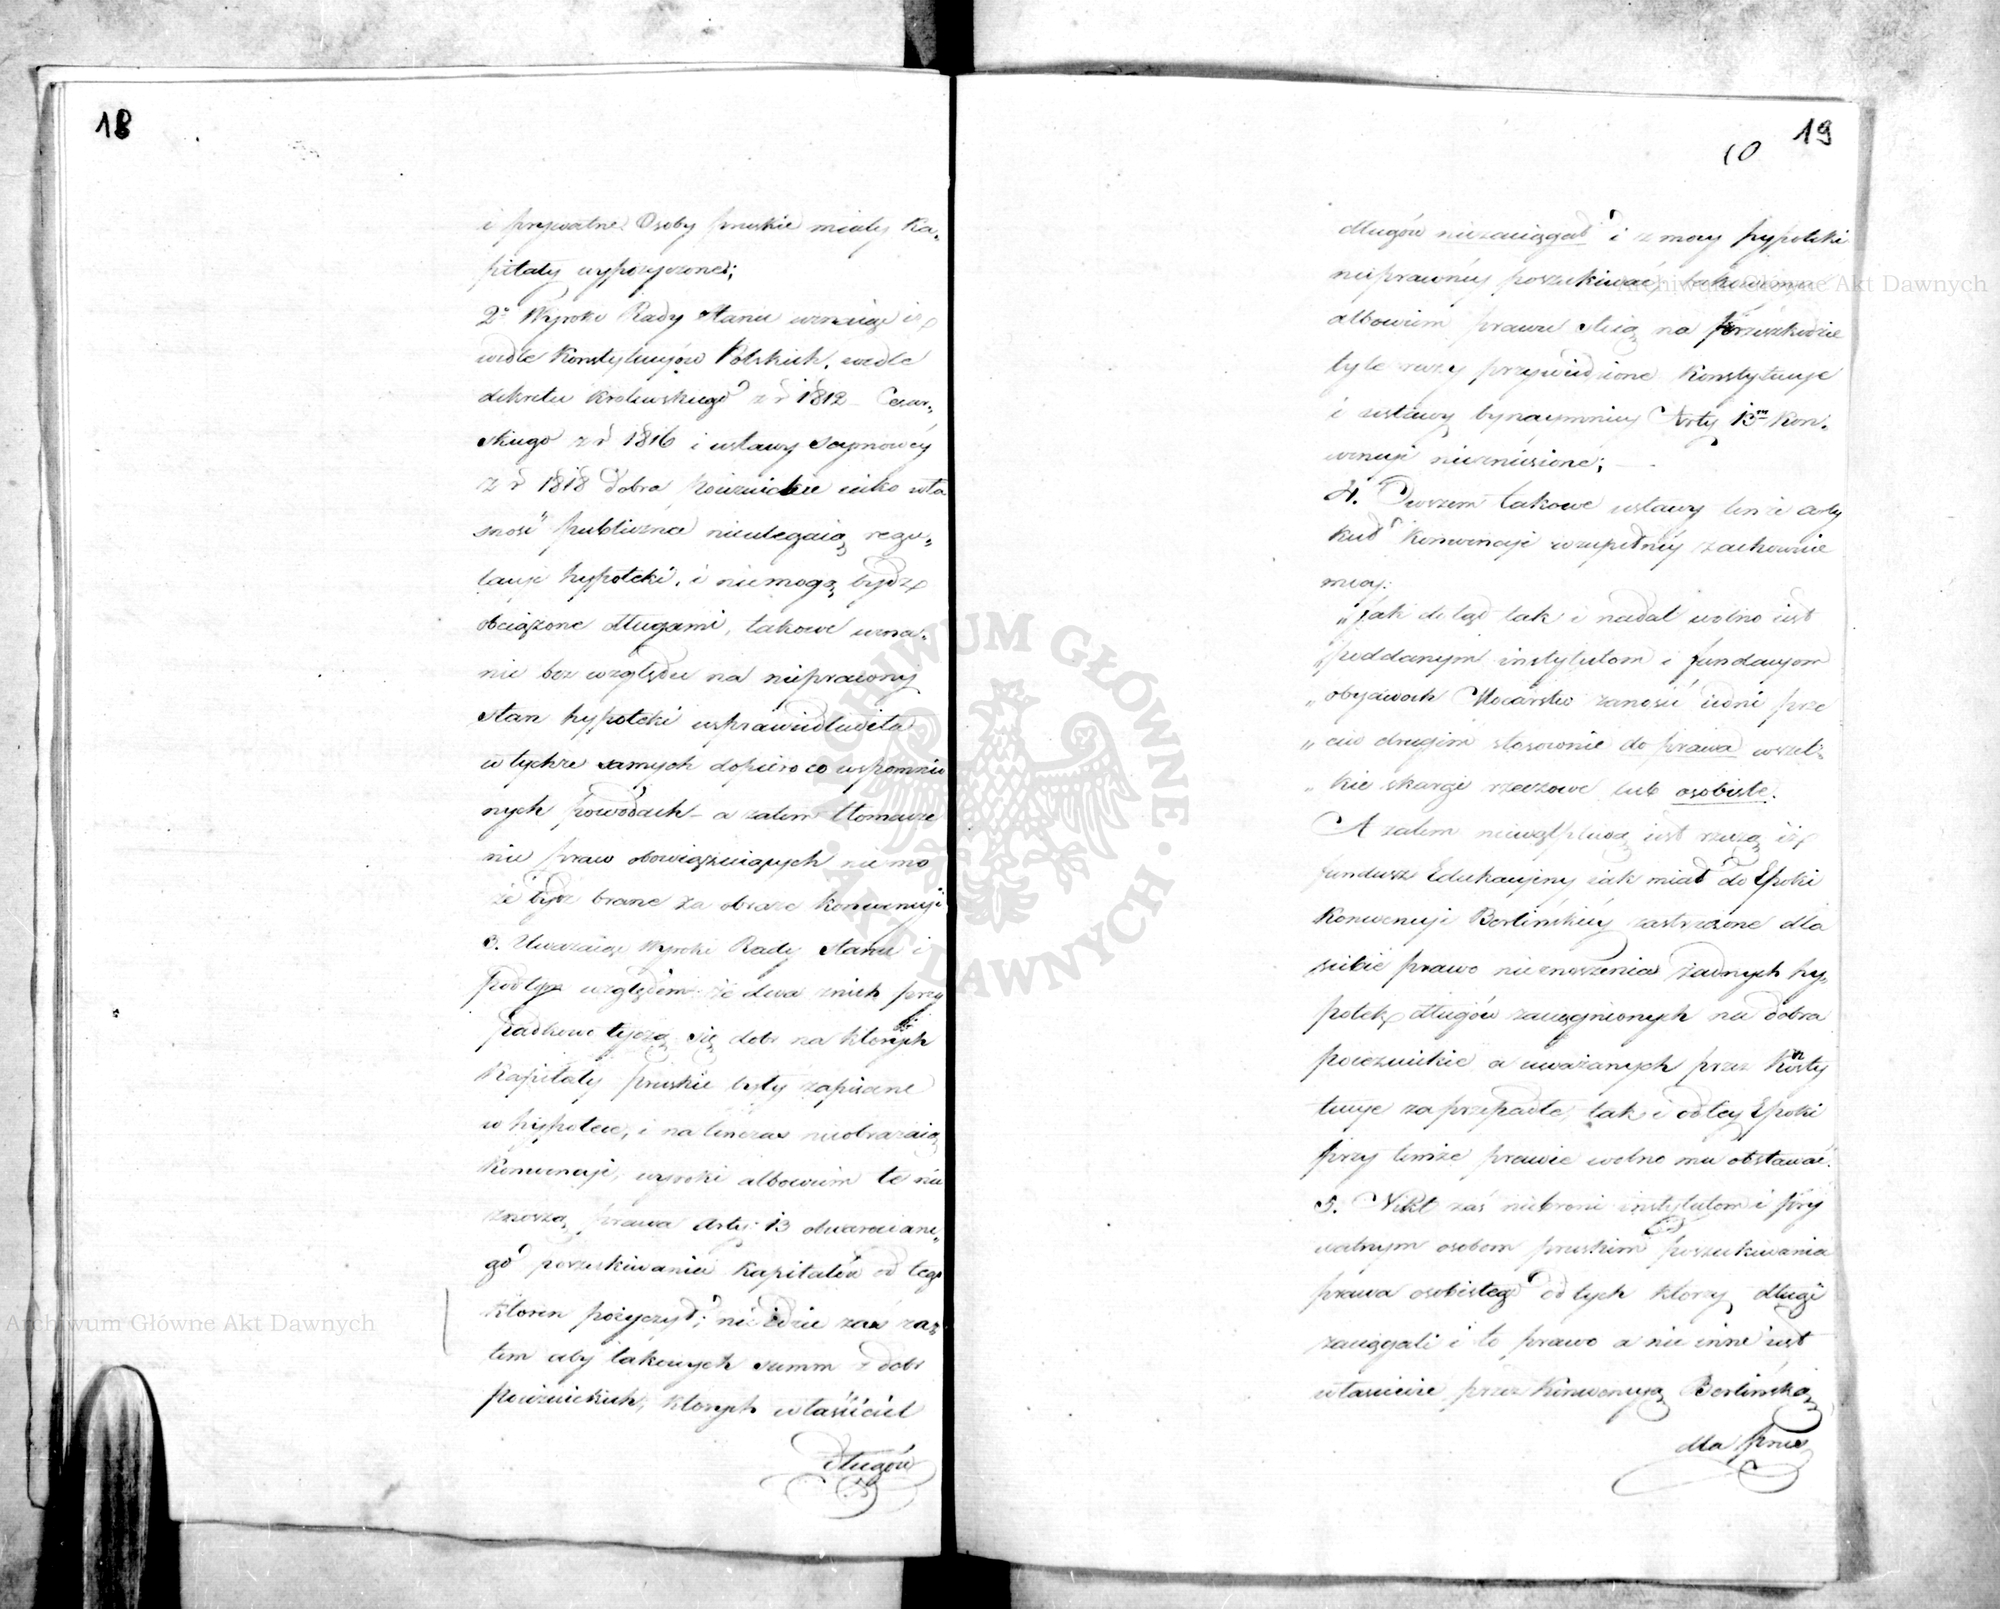 18
i prywatne Osoby pruskie miały Ka-
pitały wypożyczone;
2o Wyroki Rady Stanu uznając iż
wedle Konstytucyów Polskich, wedle
dekretu Krolewskiego z r 1812 Cesar-
skiego z r 1816 i ustawy Seymowey
z r 1818 Dobra poieznickie iako wła
sność publiczna nieulegaią regu-
lacyi hypoteki, i niemogą bydź
obciążone długami, takowe uzna-
nie bez względu na nieprawny
stan hypoteki usprawiedliwiła
w tychże samych dopiero co wspomnio
nych powodach - a zatem tłomacze
nie praw obowiązuiących nie mo
że bydź brane za obraze konwencyi
3. Uważaiąc Wyroki Rady Stanu i
podtym względem że dwa z nich przy
padkowo tyczą się dobr na ktorych
Kapitały pruskie były zapisane
w hypotece, i natenczas nieobrażaią
Konwencyi, wyroki albowiem te nie
znoszą prawa Arty: 13 obwarowane-
go poszukiwania Kapitałów od tego
ktoren pożyczył; nie idzie zaś za
tem aby takowych summ z dobr
poieznickich, ktorych właściciel
długów
19
10
długów niezaciągał i z mocy hypoteki
nieprawney poszukiwać takowemu
albowiem prawu stoią na przeszkodzie
tyle razy przywiedzione Konstytucye
i ustawy bynaymniey Arty 13m Kon-
wencyi niezniesione;
4. Owszem takowe ustawy tenże arty
kuł Konwencyi wzupełney zachowuie
mocy:
„Jak dotąd tak i nadal wolno iest
„poddanym instytutom i fundacyom
„obydwóch Mocarstw zanosić iedni prze
„ciw drugim stosownie do prawa wszel-
„kie skargi rzeczowe lub osobiste.
A zatem niewątpliwą iest rzeczą iż
fundusz Edukacyiny iak miał do Epoki
Konwencyi Berlińskiey zastrzeżone dla
siebie prawo nieznoszenia żadnych hy-
potek długów zaciągnionych na dobra
poieznickie a uważanych przez Konsty
tucye za przepadłe, tak i odtey Epoki
przy temże prawie wolno mu obstawać.
5. Nikt zaś niebroni instytutom i pry
watnym osobom pruskim poszukiwania
prawa osobistego od tych ktorzy długi
zaciągali i to prawo a nie inne iest
właściwie przez Konwencyą Berlińską
dla prus
Archiwum Główne Akt Dawnych
Archiwum Główne Akt Dawnych
ARCHIWUM GŁÓWNE AKT DAWNYCH